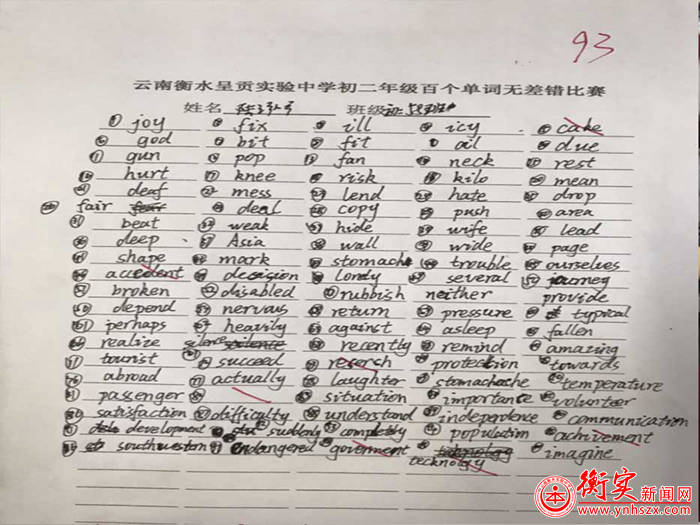 93
云南衡水呈贡实验中学初二年级百个单词无差错比赛
姓名 班级
joy fix ill icy cake
god bit fit oil due
gun pop fan neck rest
hurt knee risk kilo mean
deaf mess lend hate drop
fair deal copy push area
beat weak hide wife lead
deep Asia wall wide page
shape mark stomach trouble ourselves
accedent decision lonely several journey
broken disabled rubbish neither provide
depend nervous return pressure typical
perhaps heavily against asleep fallen
realize silence recently remind amazing
tourist succeed reserch protection towards
abroad actually laughter stomachache temperature
passenger situation importance volunteer
satisfaction difficulty understand independence communication
development suddenly completly population achivement
southwestern endangered goverment technology imagine
衡实新闻网
www.ynhszx.com